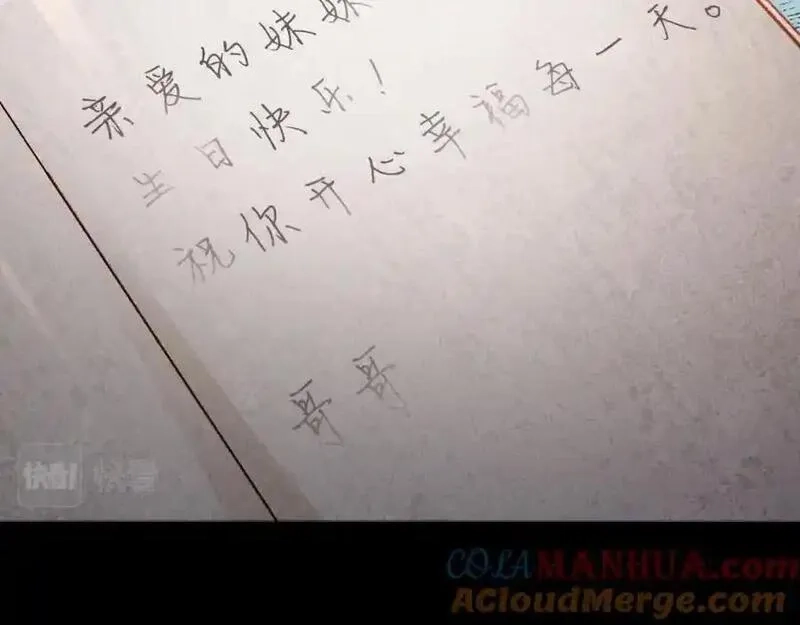 亲爱的妹妹
生日快乐！
祝你开心幸福每一天。
哥哥
快看!
快看
COLAMANHUA.com
ACloudMerge.com